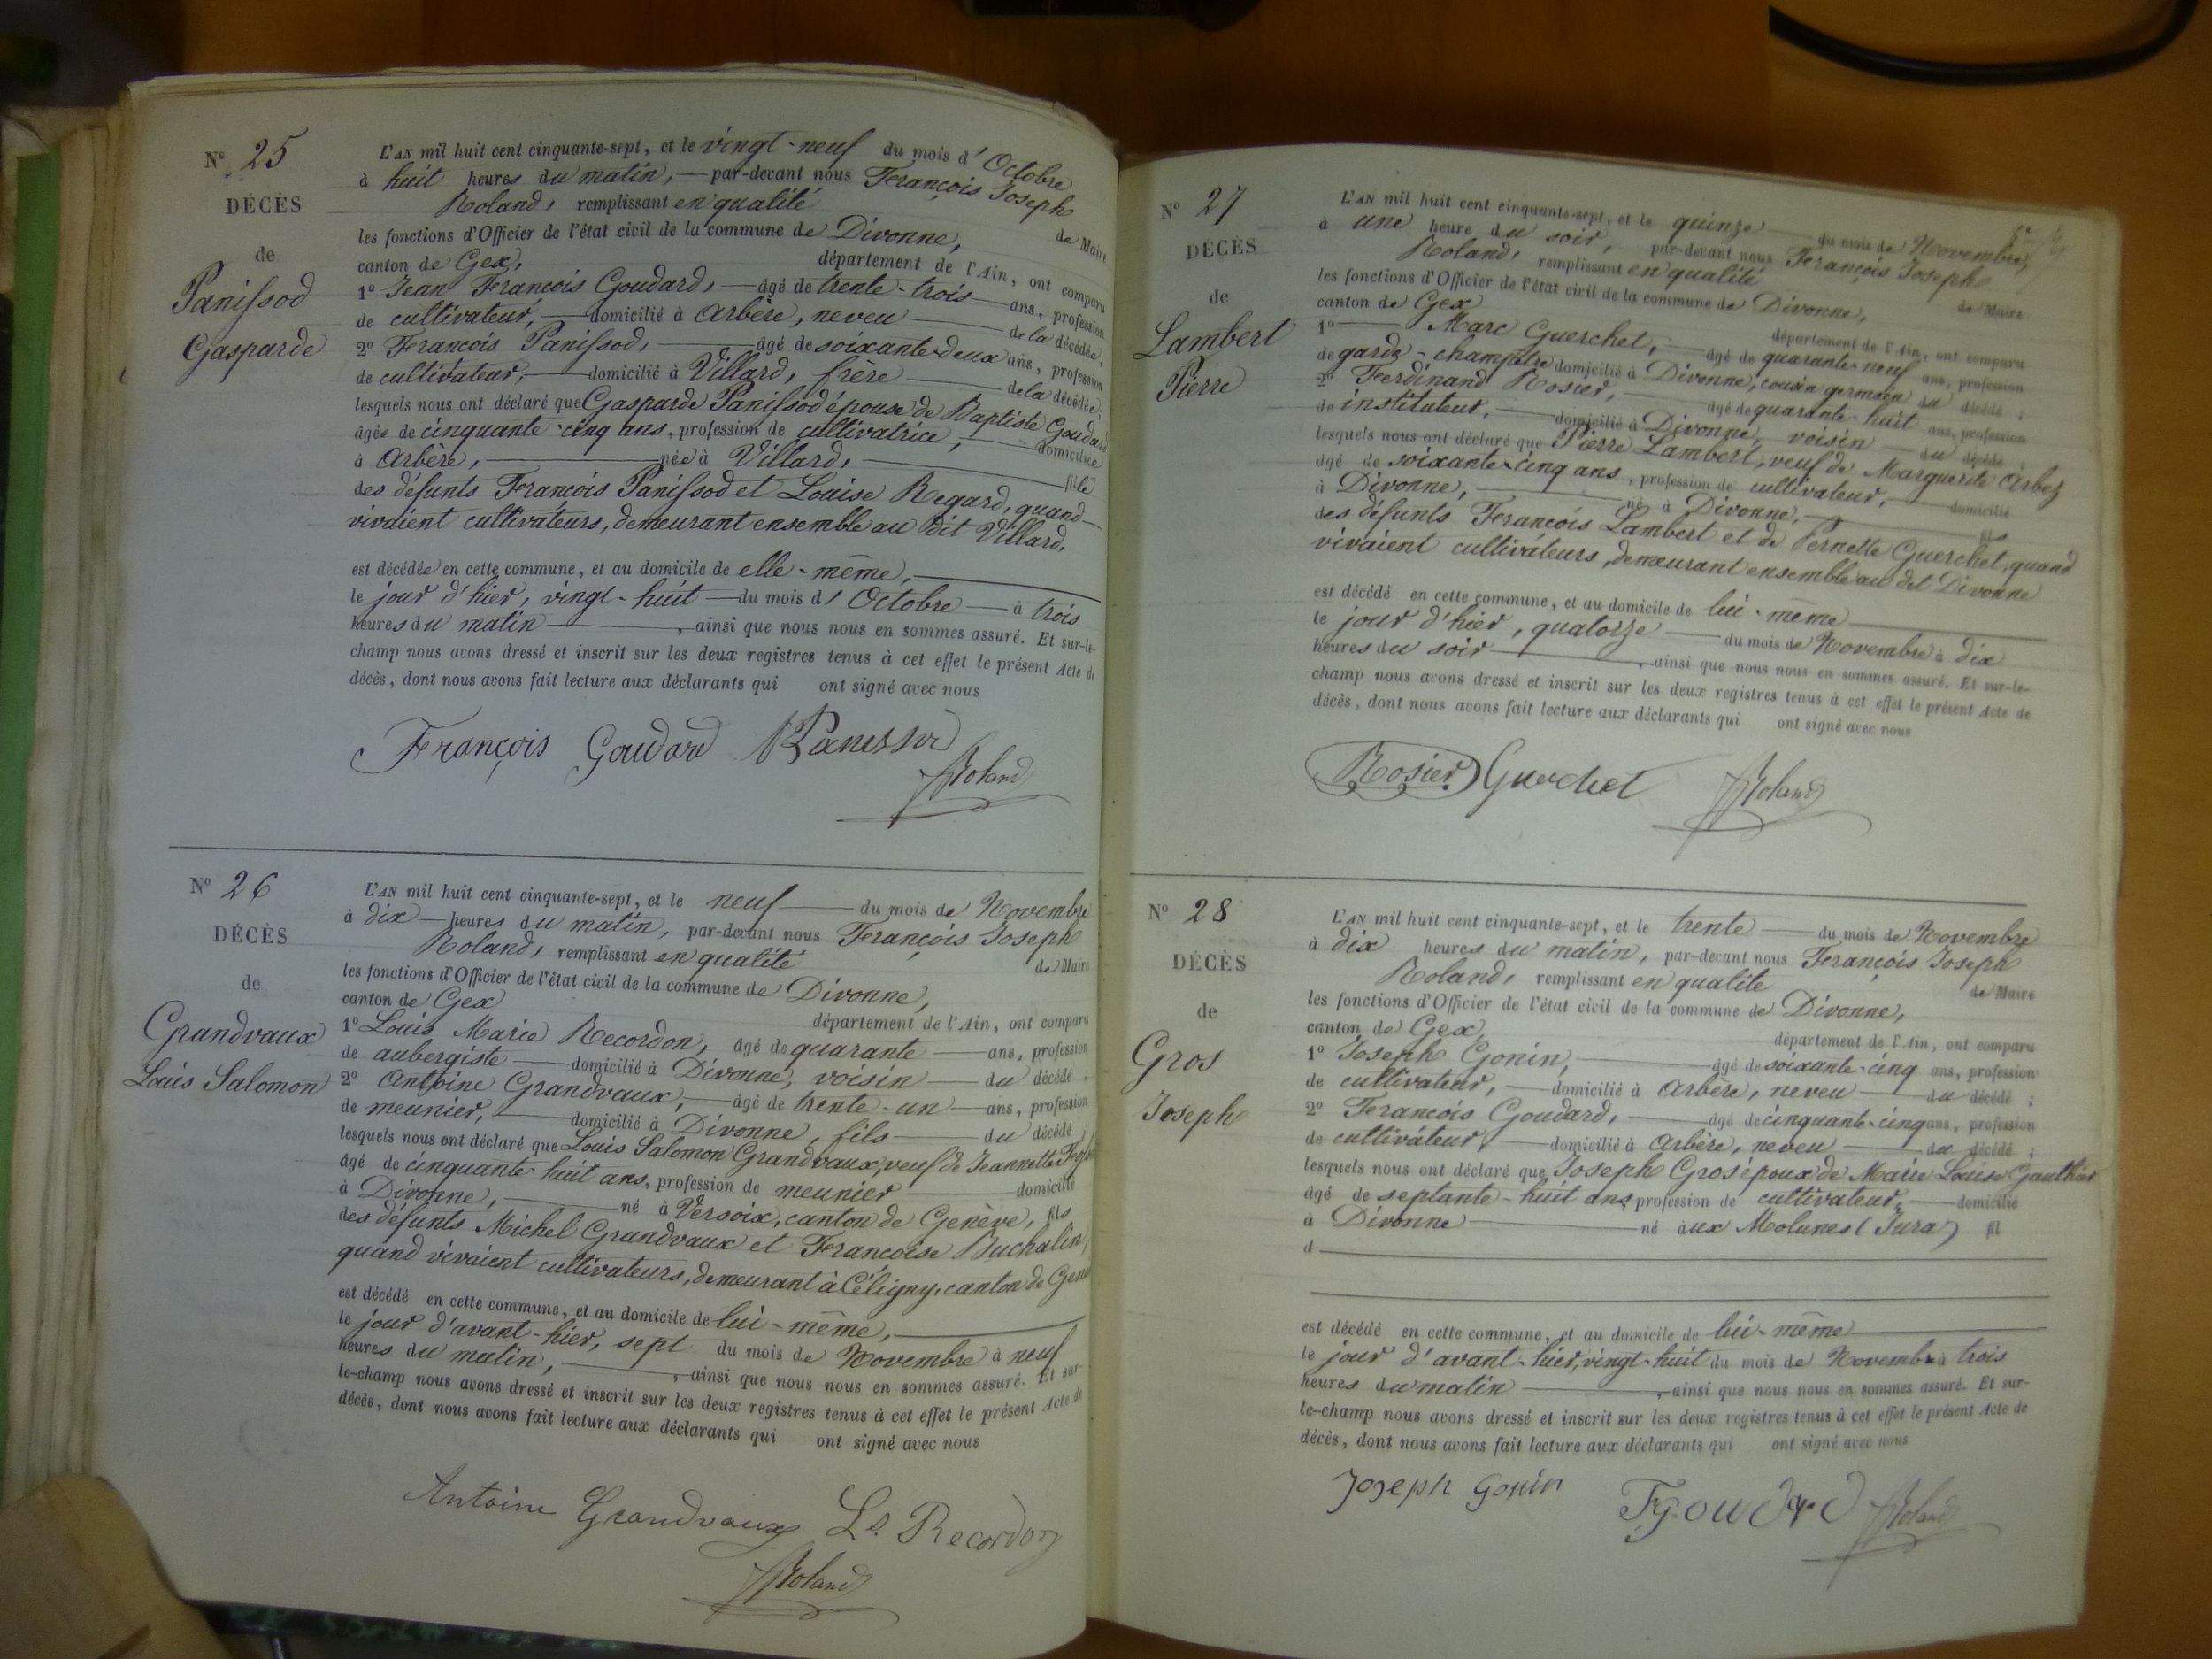 Nº 25
DÉCÈS
de
Panissod
Gasparde
L'AN mil huit cent cinquante-sept, et le vingt-neuf du mois d'Octobre
à huit heures du matin, par-devant nous François Joseph
Roland, remplissant en qualité de Maire
les fonctions d'Officier de l'état civil de la commune de Divonne,
canton de Gex, département de l'Ain, ont comparu
1º Jean François Goudard, âgé de trente-trois ans, profession
de cultivateur, domicilié à Arbère, neveu de la décédée;
2º François Panissod, âgé de soixante-deux ans, profession
de cultivateur, domicilié à Villard, frère de la décédée;
lesquels nous ont déclaré que Gasparde Panissod épouse de Baptiste Goudard
âgée de cinquante-cinq ans, profession de cultivatrice, domiciliée
à Arbère, née à Villard, fille
des défunts François Panissod et Louise Regard, quand
vivaient cultivateurs, demeurant ensemble au dit Villard.
est décédée en cette commune, et au domicile de elle-même,
le jour d'hier, vingt-huit du mois d'Octobre à trois
heures du matin, ainsi que nous nous en sommes assuré. Et sur-le-
champ nous avons dressé et inscrit sur les deux registres tenus à cet effet le présent Acte de
décès, dont nous avons fait lecture aux déclarants qui ont signé avec nous
François Goudard Panissod
Roland
Nº 26
DÉCÈS
de
Grandvaux
Louis Salomon
L'AN mil huit cent cinquante-sept, et le neuf du mois de Novembre
à dix heures du matin, par-devant nous François Joseph
Roland, remplissant en qualité de Maire
les fonctions d'Officier de l'état civil de la commune de Divonne,
canton de Gex département de l'Ain, ont comparu
1º Louis Marie Recordon, âgé de quarante ans, profession
de aubergiste domicilié à Divonne, voisin du décédé;
2º Antoine Grandvaux, âgé de trente-un ans, profession
de meunier, domicilié à Divonne, fils du décédé;
lesquels nous ont déclaré que Louis Salomon Grandvaux, veuf de Jeannette
âgé de cinquante-huit ans, profession de meunier domicilié
à Divonne, né à Versoix, canton de Genève, fils
des défunts Michel Grandvaux et Françoise Buchalin,
quand vivaient cultivateurs, demeurant à Céligny, canton de
est décédé en cette commune, et au domicile de lui-même,
le jour d'avant-hier, sept du mois de Novembre à neuf
heures du matin, ainsi que nous nous en sommes assuré. Et sur-
le-champ nous avons dressé et inscrit sur les deux registres tenus à cet effet le présent Acte de
décès, dont nous avons fait lecture aux déclarants qui ont signé avec nous
Antoine Grandvaux Ls Recordon
Roland
Nº 27
DÉCÈS
de
Lambert
Pierre
L'AN mil huit cent cinquante-sept, et le quinze du mois de Novembre,
à une heure du soir, par-devant nous François Joseph
Roland, remplissant en qualité de Maire
les fonctions d'Officier de l'état civil de la commune de Divonne,
canton de Gex département de l'Ain, ont comparu
1º Marc Guerchet, âgé de quarante-neuf ans, profession
de garde-champêtre domicilié à Divonne, cousin germain du décédé;
2º Ferdinand Rosier, âgé de quarante-huit ans, profession
de instituteur, domicilié à Divonne, voisin du décédé;
lesquels nous ont déclaré que Pierre Lambert, veuf de Marguerite Arbez
âgé de soixante-cinq ans, profession de cultivateur, domicilié
à Divonne, né à Divonne, fils
des défunts François Lambert et de Pernette Guerchet, quand
vivaient cultivateurs, demeurant ensemble au dit Divonne
est décédé en cette commune, et au domicile de lui-même
le jour d'hier, quatorze du mois de Novembre à dix
heures du soir, ainsi que nous nous en sommes assuré. Et sur-le-
champ nous avons dressé et inscrit sur les deux registres tenus à cet effet le présent Acte de
décès, dont nous avons fait lecture aux déclarants qui ont signé avec nous
Rosier Guerchet Roland
Nº 28
DÉCÈS
de
Gros
Joseph
L'AN mil huit cent cinquante-sept, et le trente du mois de Novembre
à dix heures du matin, par-devant nous François Joseph
Roland, remplissant en qualité de Maire
les fonctions d'Officier de l'état civil de la commune de Divonne,
canton de Gex, département de l'Ain, ont comparu
1º Joseph Gonin, âgé de soixante-cinq ans, profession
de cultivateur, domicilié à Arbère, neveu du décédé;
2º François Goudard, âgé de cinquante-cinq ans, profession
de cultivateur, domicilié à Arbère, neveu du décédé;
lesquels nous ont déclaré que Joseph Gros époux de Marie Louise Gaulthier
âgé de septante-huit ans profession de cultivateur, domicilié
à Divonne né aux Molunes (Jura) fil
d
est décédé en cette commune, et au domicile de lui-même
le jour d'avant-hier, vingt-huit du mois de Novembre à trois
heures du matin, ainsi que nous nous en sommes assuré. Et sur-
le-champ nous avons dressé et inscrit sur les deux registres tenus à cet effet le présent Acte de
décès, dont nous avons fait lecture aux déclarants qui ont signé avec nous
Joseph Gonin F. Goudard Roland